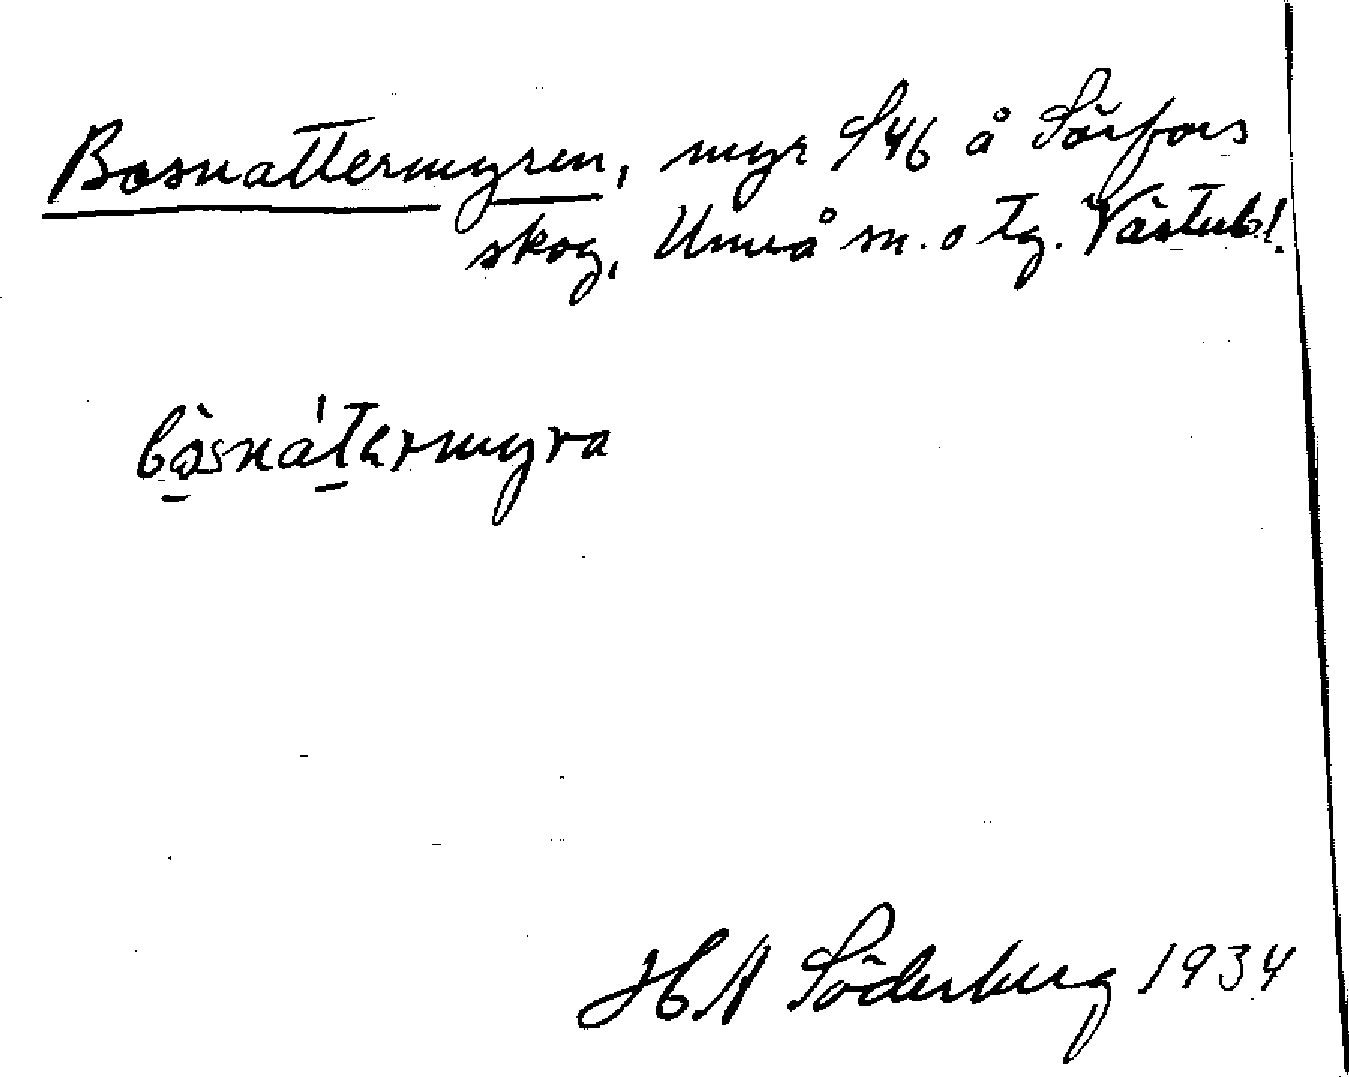 Bosnattermyren, myr S46 å Sörfors
skog, Umeå sn. o tg. Västerb!
bòsnátermyra
H A Söderberg 1934